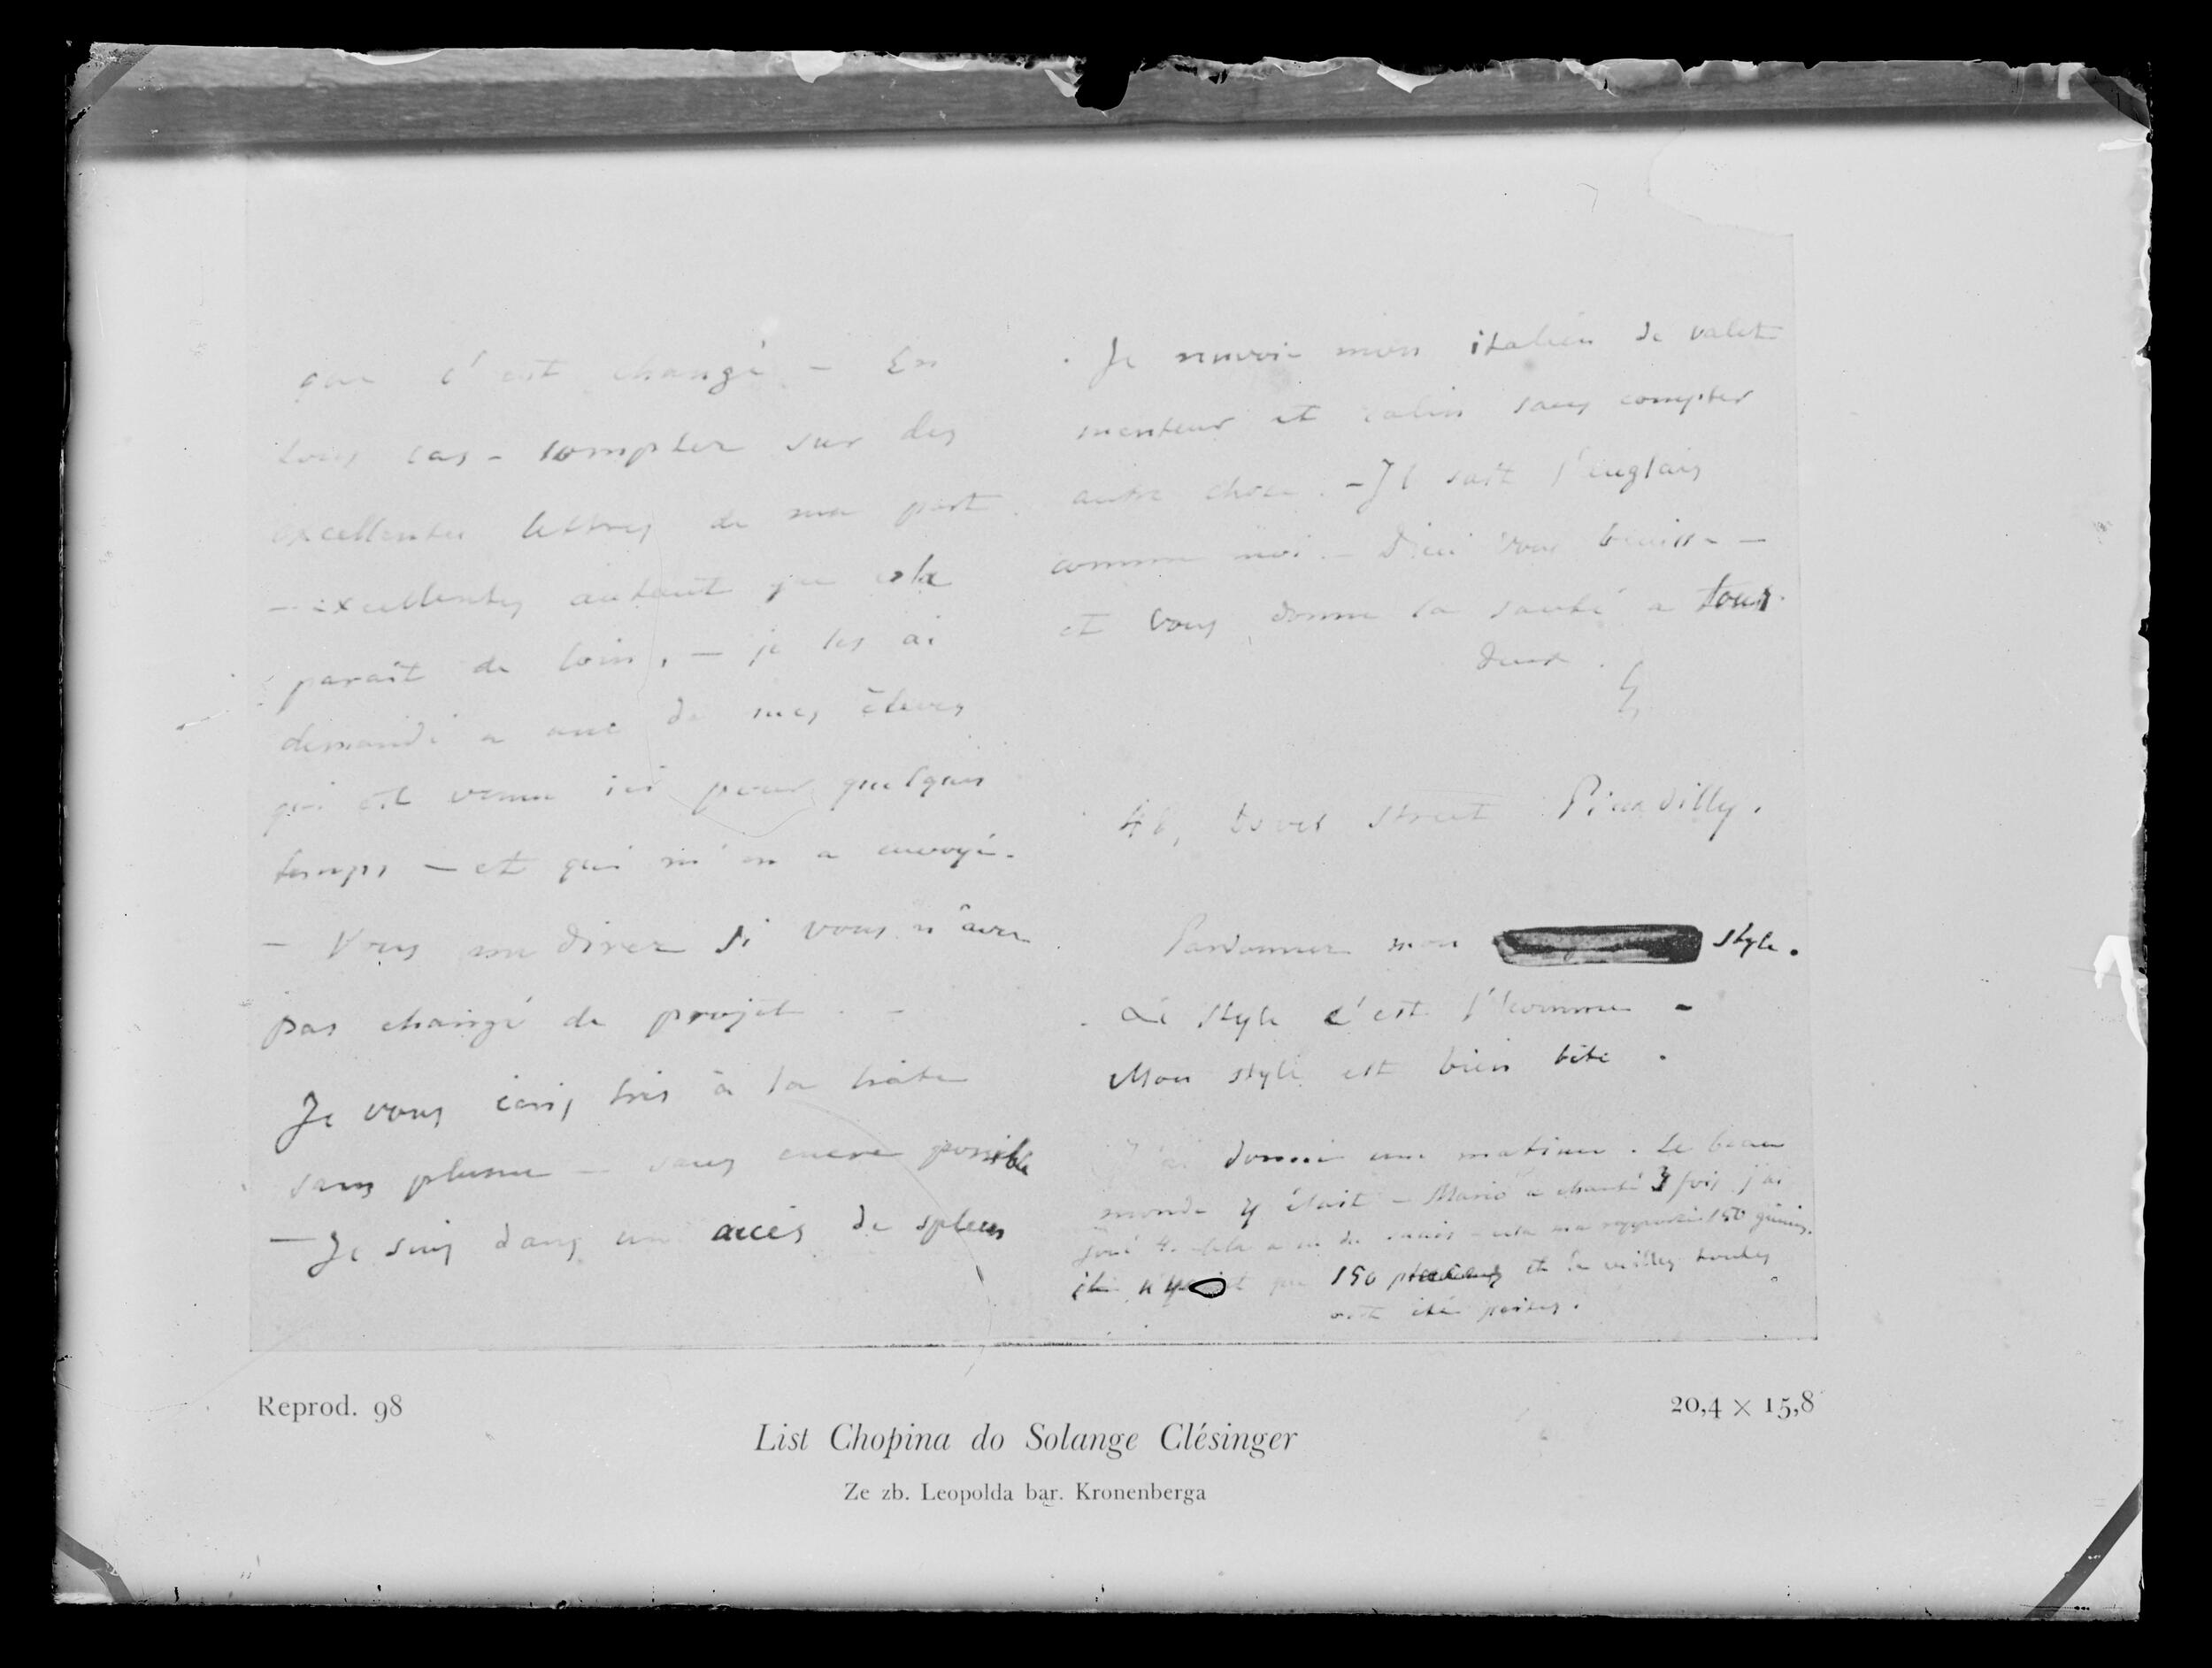 que c'est changé – En
tous cas – compter sur des
excellentes lettres de ma part
– excellentes autant que cela
parait de loin, – je les ai
demandé a une de mes élèves
qui est venue ici pour quelques
temps – et qui m'en a envoyé.
– Vous me direz si vous n'avez
pas changé de projet. –
Je vous écris très à la hâte
sans plume – sans encre possible
– Je suis dans un accès de spleen
Je renvoie mon italien de valet
menteur et calin sans compter
autre chose. – Il sait l'anglais
comme moi. – Dieu vous benisse –
et vous donne la santé a tous
deux.
48, Dover Street Piccadilly.
Pardonnez mon style.
Le style c'est l'homme –
Mon style est bien bête.
J'ai donné une matinée. Le beau
monde y était – Mario a chanté 3 fois j'ai
joué 4. Cela a eu du succès – cela m'a rapporté 150 guinées.
il n'y que 150 places et la veille toutes
ont été prises.
Reprod. 98
20,4 × 15,8
List Chopina do Solange Clésinger
Ze zb. Leopolda bar. Kronenberga